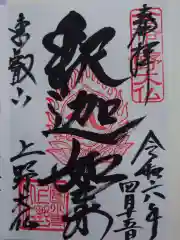 奉拝
令和六年
四月十五日
釈迦如来
東叡山
上野大仏